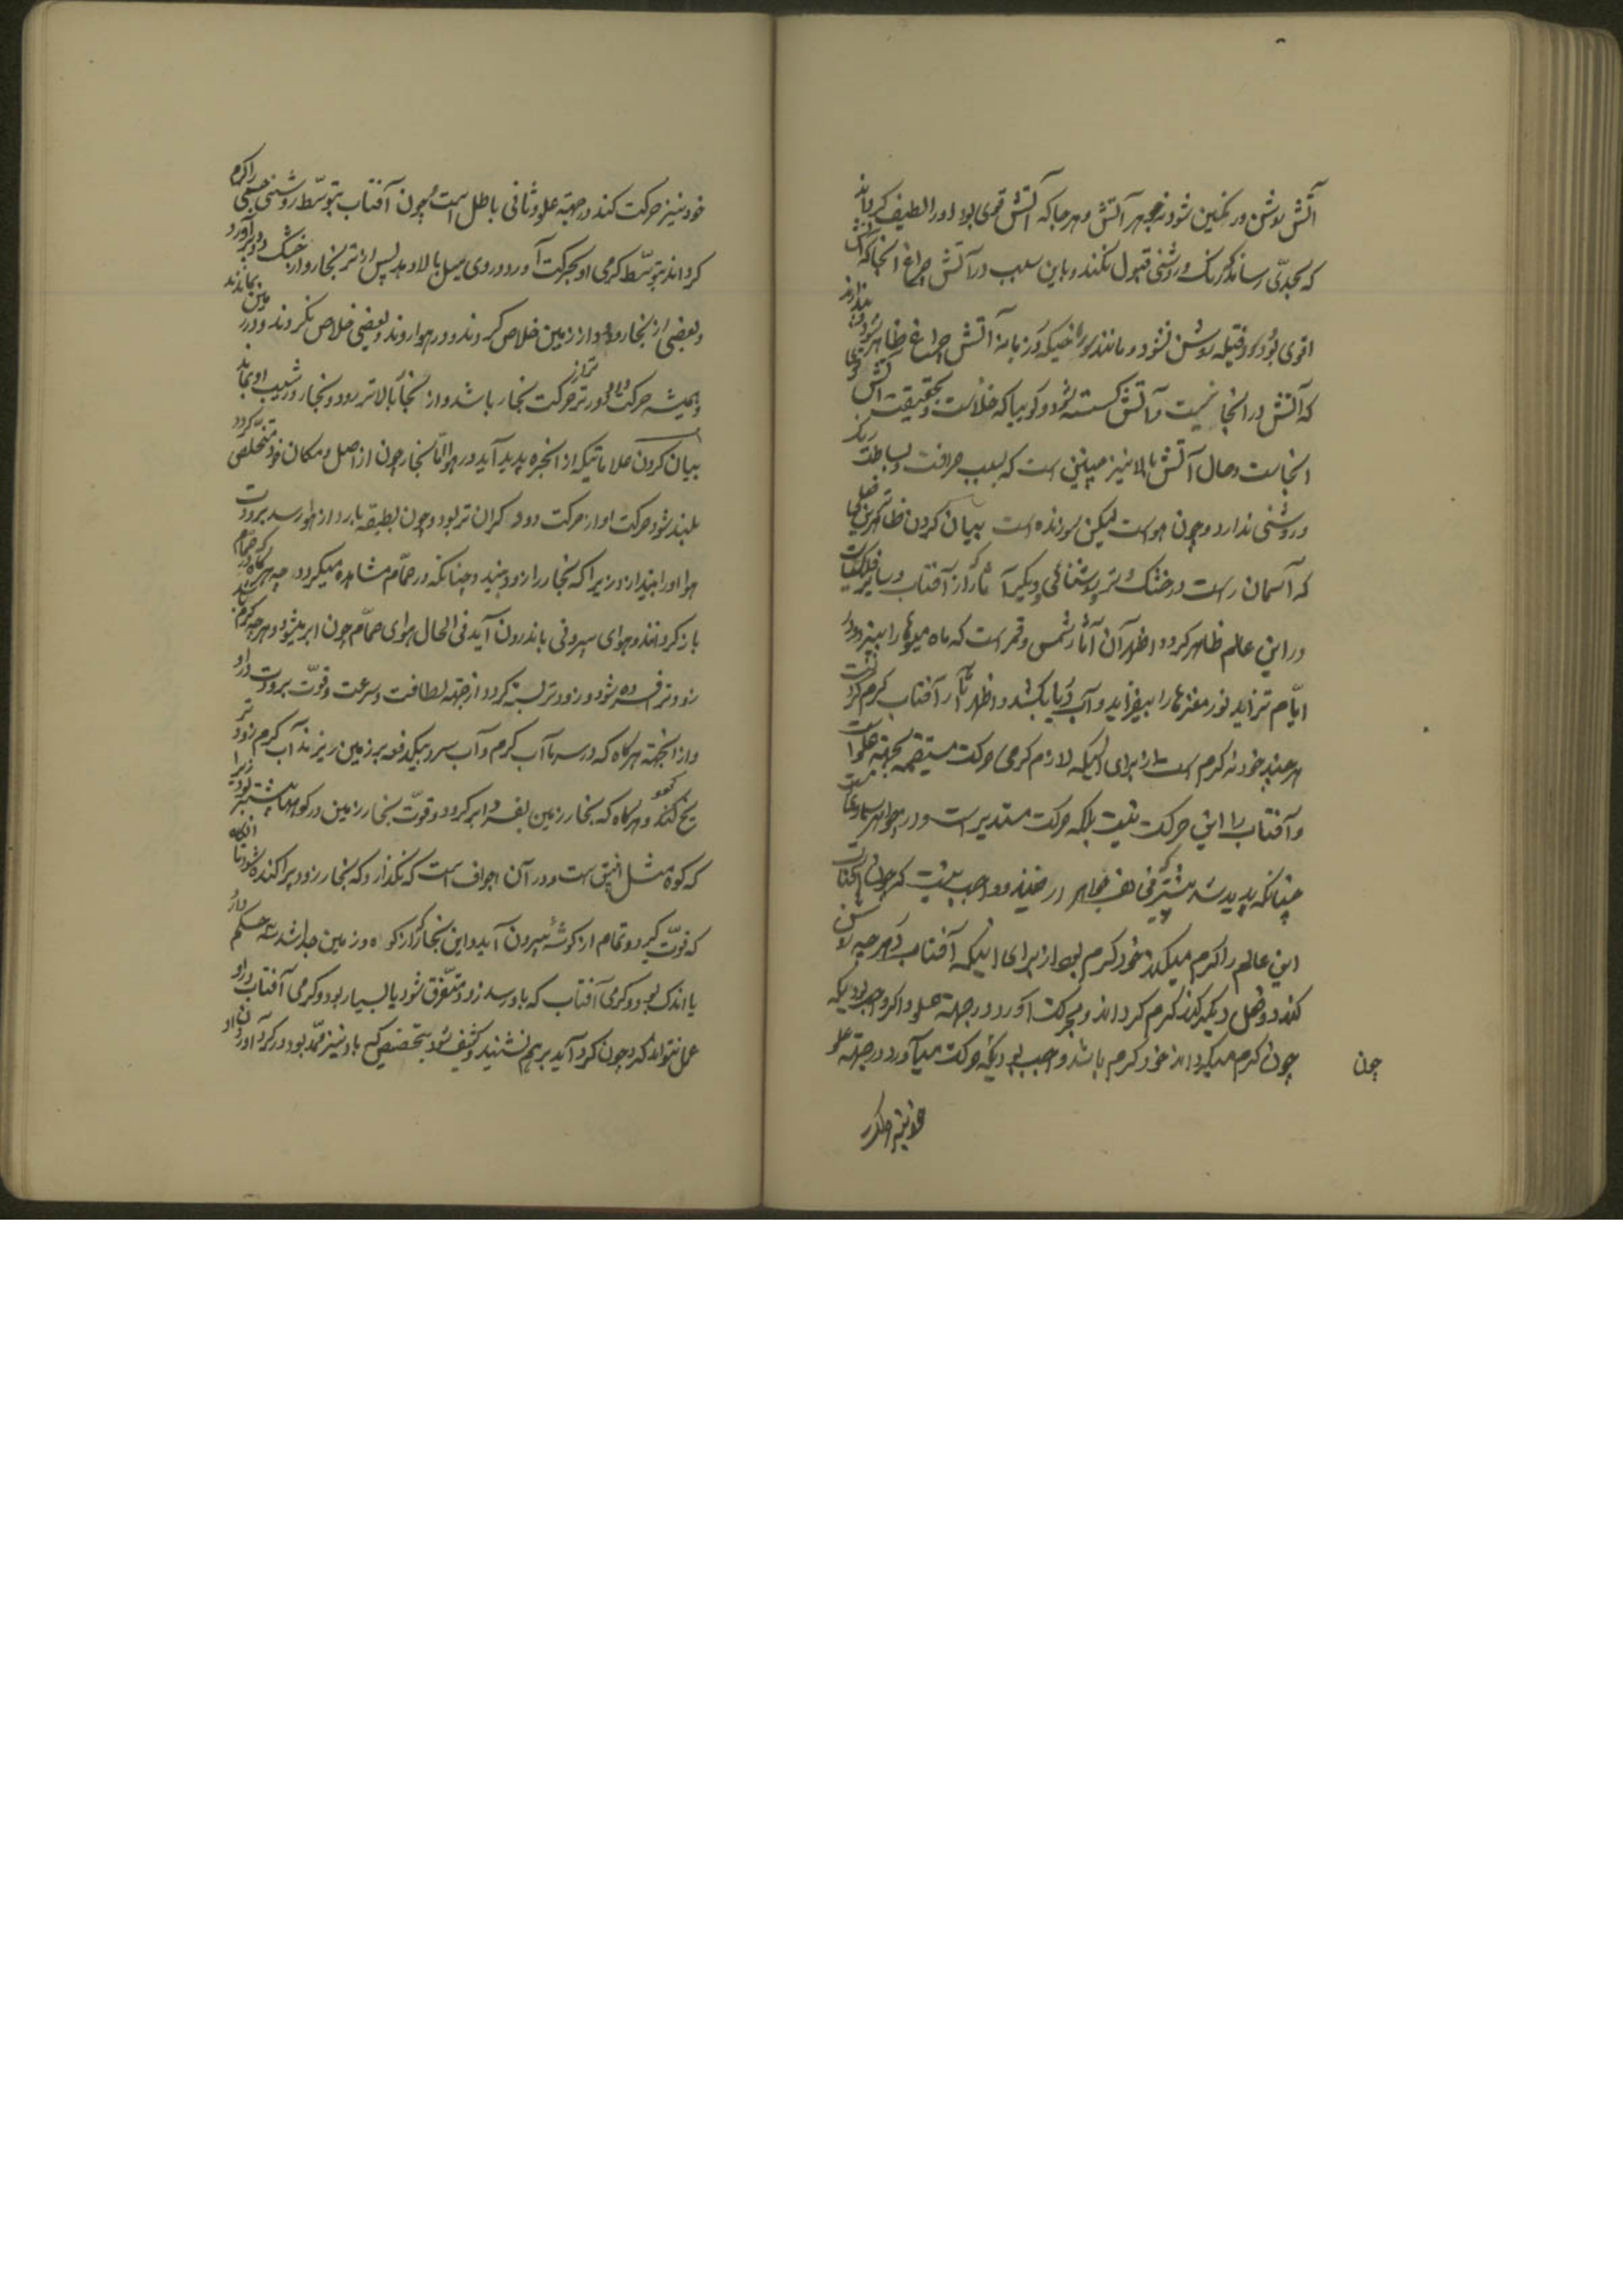 آتش روشن و رنگین شود نه جوهر آتش و هرجا که آتش قوی بود او را لطیف گرداند
که بحدّی رساند که رنگ و روشنی قبول نکند و باین سبب در آتش چراغ آنجا که آتش
اقوی بود و فتیله روشن نشود و مانند سوراخیکه در زبانه آتش چراغ ظاهر شود
که آتش در آنجا نیست و آتش گسسته شود و گویا که خلاست و بحقیقت آتش
آنجاست و حال آتش بالا نیز چنین است که بسبب صرافت و بساطت رنگ
و روشنی ندارد و چون هواست لیکن سوزنده است بیان کردن ظاهرترین فعلی
که آسمان راست در خشک و تر روشنائی و دیگر آثار از آفتاب و سایر فلکیات
در این عالم ظاهر گردد و اظهر آن آثار شمس و قمر است که ماه میوها را بپزد و در
ایّام تزاید نور مغزها را بیفزاید و آب دریا بکشد و اظهر آثار آفتاب گرم کردنست
هر چند خود نه گرم است از برای اینکه لازم گرمی حرکت مستقیم بجهة علو است
و آفتاب را این حرکت نیست بلکه حرکت مستدیر است و در جواهر سماوی
چنانکه پدید شد پیشتر و واجب نیست که چون آفتاب
این عالم را گرم میکند خود گرم بود از برای اینکه آفتاب هرچه روشن
کند و فعل دیگر کند گرم گرداند و بحرکت آورد در جهة علو و اگر واجب بود که
چون گرم میگرداند خود گرم باشد واجب بود که چون حرکت میآورد در جهة علو
چون
خود نیز حرکت کند در جهة علو و ثانی باطل است و چون آفتاب بتوسّط روشنی چیزی را گرم
گرداند بتوسّط گرمی او بحرکت آورد و روی میل ببالا دهد پس از تر بخار و از خشک دود برآورد
و بعضی از بخار و دود از زمین خلاص گردند و در هوا روند و بعضی خلاص نگردند و در زمین بمانند
و همیشه حرکت دود زودتر از حرکت بخار باشد و از بخار بالاتر رود و بخار در شیب او بماند
بیان کردن علاماتیکه از ابخره پدید آید در هوا امّا بخار چون از اصل و مکان خود متخلّص گردد
بلند شود حرکت او از حرکت دود گران تر بود و چون بطبقه بارد از هوا رسد برودت
هوا او را بیندازد زیرا که بخار را زود بندد چنانکه در حمّام مشاهده میگردد چه هرگاه در حمّام
باز گردانند و هوای بیرونی باندرون آید فی الحال هوای حمّام چون ابر میشود و هرچه گرم
زودتر فسرده شود و زودتر بسته گردد از جهة لطافت و سرعت و قوّت برودت دارد
و از اینجهة هرگاه که در سرما آب گرم و آب سرد بیکدفعه بر زمین ریزند آب گرم زودتر
یخ کند و هرگاه که بخار زمین بفسرد ابر گردد و قوّت بخار زمین در کوهها بیشتر بود زیرا
که کوه مثل انبیق است و در آن اجواف است که نگذارد که بخار زود پراکنده شود تا آنگاه
که قوّت گیرد و تمام از گوشه بیرون آید و این بخار که از کوه و زمین جدا شد سه حکم دارد
یا اندک بود و گرمی آفتاب که باو رسد زود متفرّق شود یا بسیار بود و گرمی آفتاب در او
عمل نتواند کرد چون گرد آید برهم نشیند و کثیف شود بتخصیص که باد نیز ممدّ بود در گرد آوردن او